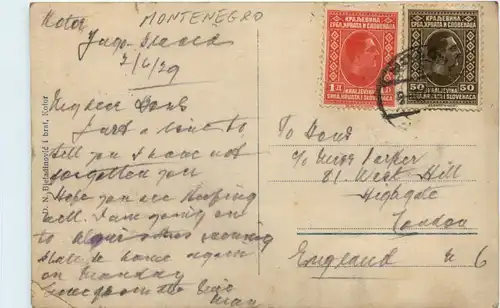 MONTENEGRO
Kotor
Jugo-Slavia
2/6/29
My dear Doris
Just a line to
tell you I have not
forgotten you
Hope you are keeping
well. I am going on
to
shall be home again
on Monday
from the
КРАЉЕВИНА
СРБА, ХРВАТА И СЛОВЕНАЦА
1
KRALJEVINA
SRBA, HRVATA I SLOVENACA
КРАЉЕВИНА
СРБА, ХРВАТА И СЛОВЕНАЦА
50 50
KRALJEVINA
SRBA, HRVATA I SLOVENACA
To Doris
c/o Miss Parker
81 West Hill
Highgate
London
England N 6
D. N. Bjeladinović i brat, Kotor